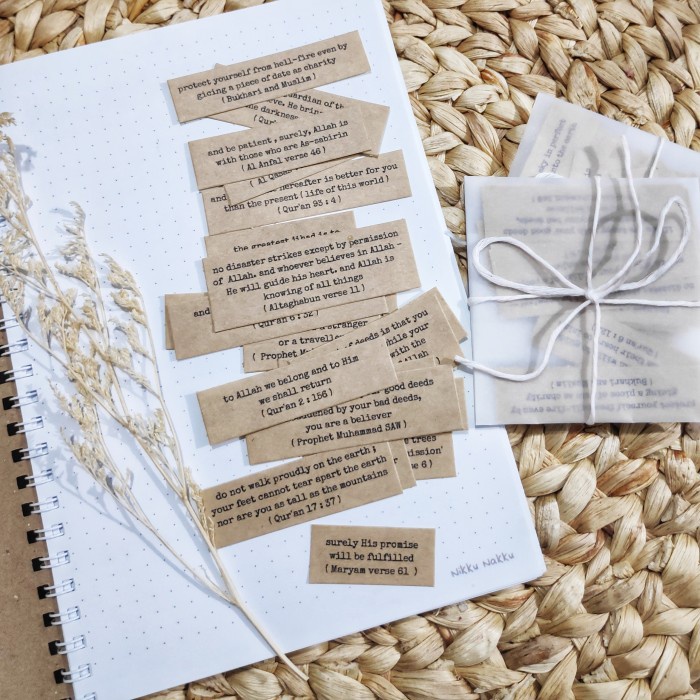 protect yourself from hell-fire even by
giving a piece of date as charity
( Bukhari and Muslim )
uardian of th
eve, He brin
the darkness
( Qur'
and be patient , surely, Allah is
with those who are As-sabirin
( Al Anfal verse 46 )
( Al Qasa
ereafter is better for you
than the present ( life of this world )
( Qur'an 93 : 4 )
the greatest jihad is to
no disaster strikes except by permission
of Allah, and whoever believes in Allah -
He will guide his heart, and Allah is
knowing of all things
( Altaghabun verse 11 )
and
( Qur'an 6 : 32 )
stranger
or a travell
( Prophet M
deeds is that you
while your
with the
llah
to Allah we belong and to Him
we shall return
( Qur'an 2 : 156 )
good deeds
dened by your bad deeds,
you are a believer
( Prophet Muhammad SAW )
trees
ission'
se 6 )
do not walk proudly on the earth ;
your feet cannot tear apart the earth
nor are you as tall as the mountains
( Qur'an 17 : 37 )
surely His promise
will be fulfilled
( Maryam verse 61 )
Nikku Nakku